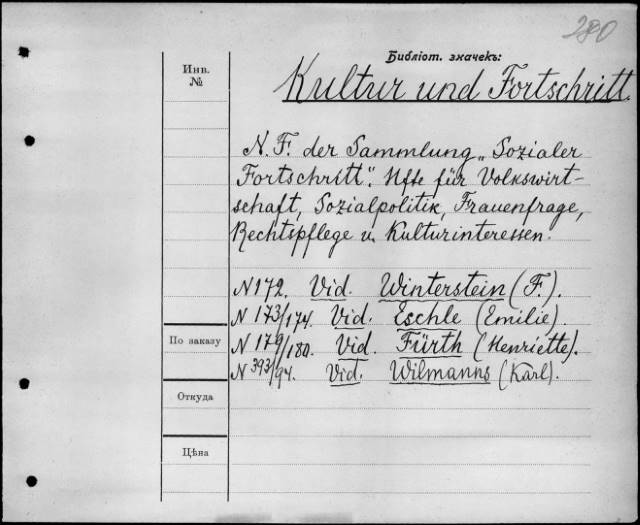 280
Библіот. значекъ:
Инв.
№
Kultur und Fortschritt.
N. F. der Sammlung „Sozialer
Fortschritt". Hfte für Volkswirt-
schaft, Sozialpolitik, Frauenfrage,
Rechtspflege u. Kulturinteressen.
N 172. Vid. Winterstein (F.).
N 173/174. Vid. Eschle (Emilie).
По заказу
N 179/180. Vid. Fürth (Henriette).
N 393/94. Vid. Wilmanns (Karl).
Откуда
Цѣна